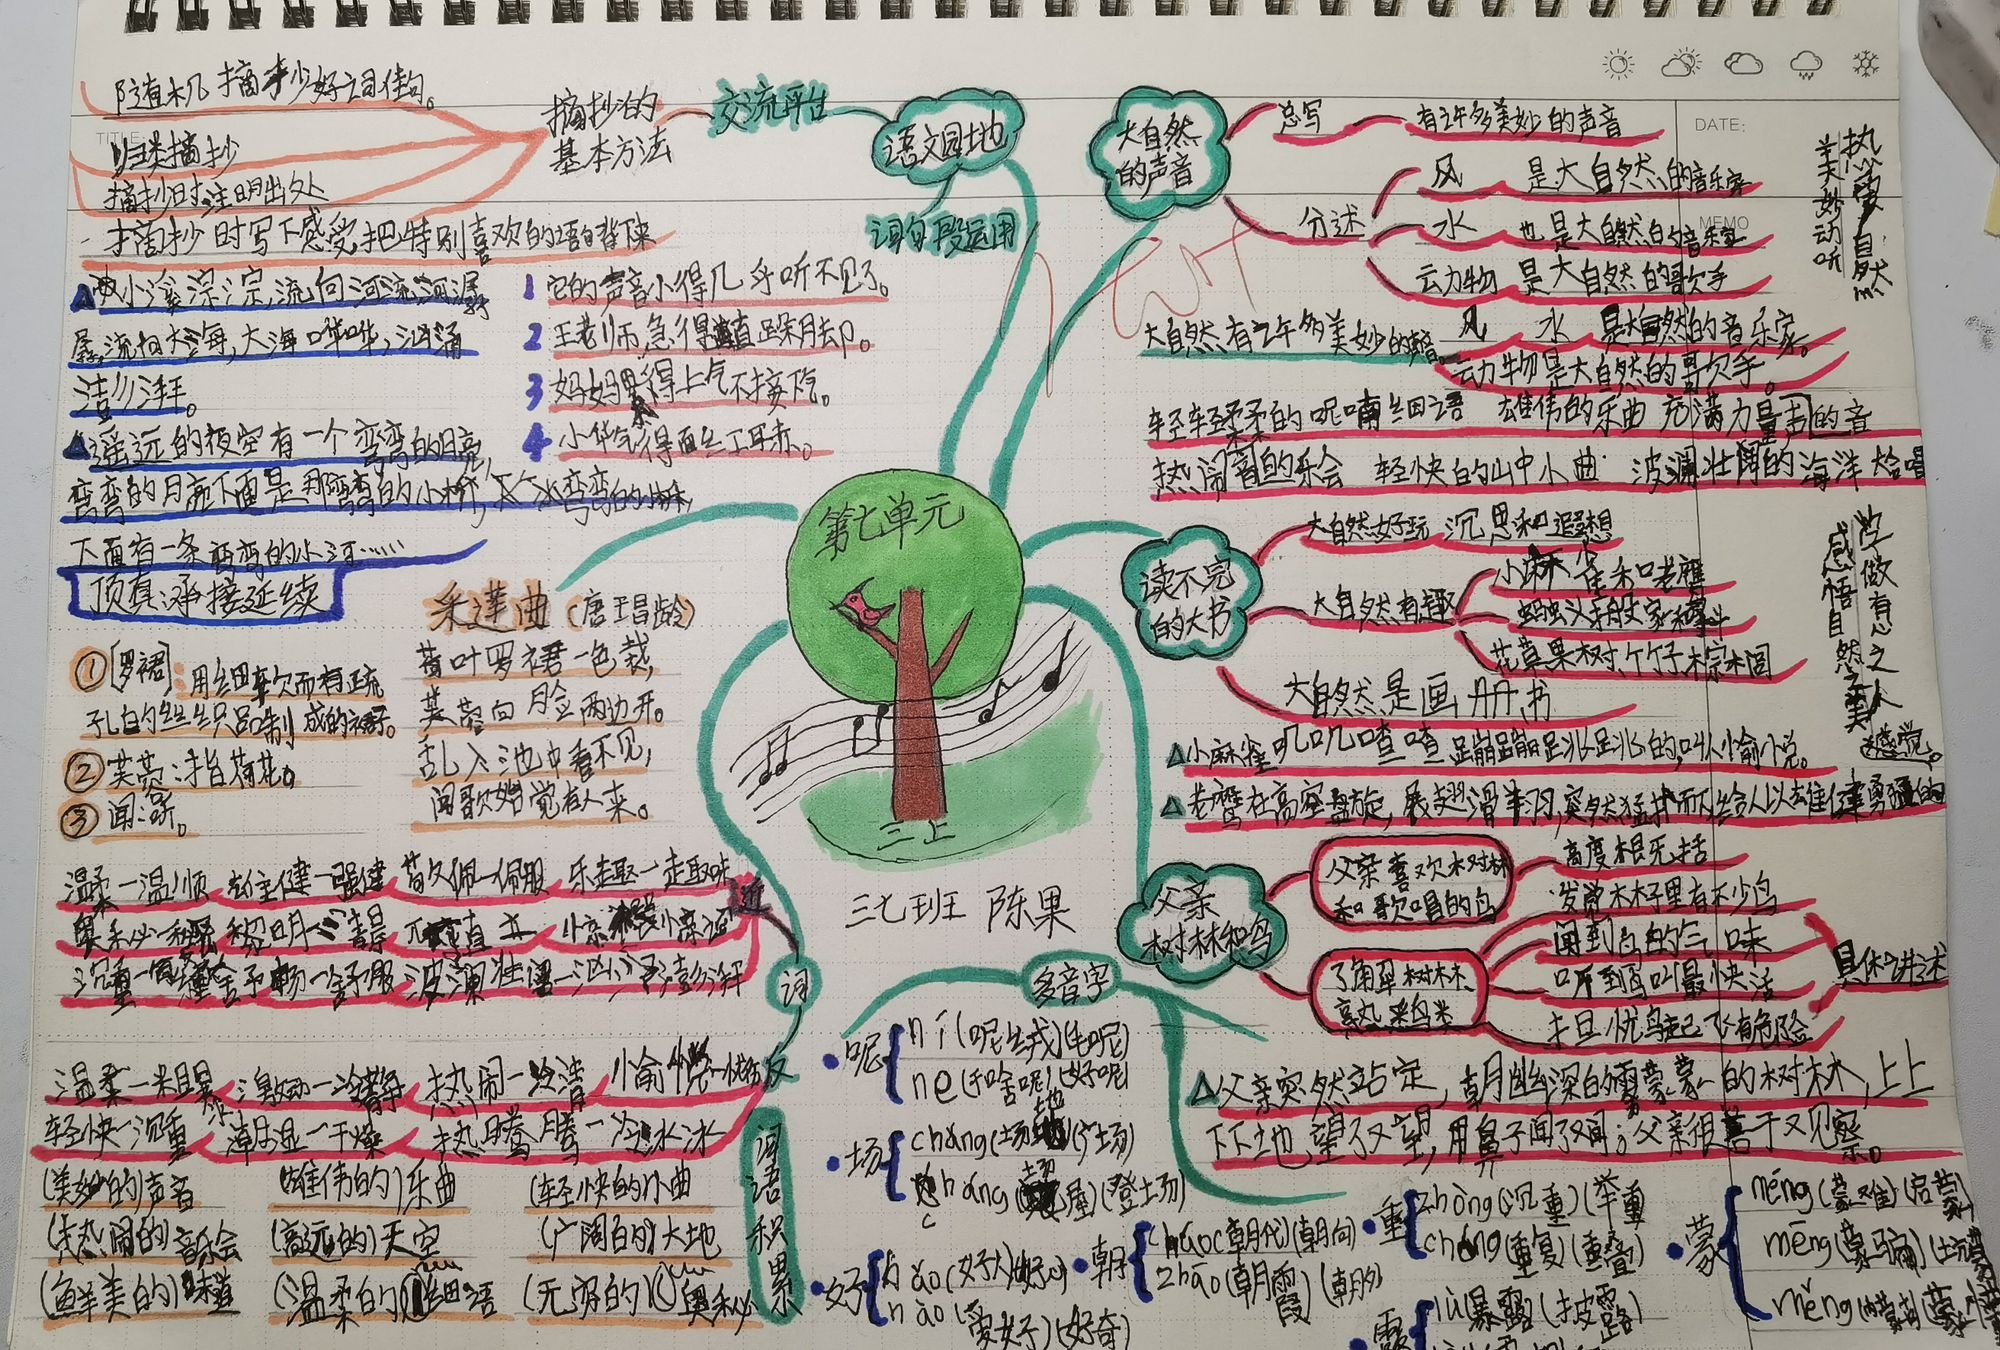 随机摘抄好词佳句。
归类摘抄
摘抄时注明出处
摘抄时写下感受,把特别喜欢的语句背下来
摘抄的
基本方法
交流平台
语文园地
词句段运用
小溪淙淙,流向河流,河流潺
潺,流向大海,大海哗哗,汹涌
澎湃。
遥远的夜空有一个弯弯的月亮,
弯弯的月亮下面是那弯弯的小桥,
下面有一条弯弯的小河……
顶真:承接延续
1 它的声音小得几乎听不见了。
2 王老师急得直跺脚。
3 妈妈累得上气不接下气。
4 小华气得面红耳赤。
采莲曲 (唐 王昌龄)
荷叶罗裙一色裁,
芙蓉向脸两边开。
乱入池中看不见,
闻歌始觉有人来。
① [罗裙]:用细软而有疏
孔的丝织品制成的裙子。
② 芙蓉:指荷花。
③ 闻:听。
第七单元
三上
三七班 陈果
大自然
的声音
总写
有许多美妙的声音
分述
风 是大自然的音乐家
水 也是大自然的音乐家
动物 是大自然的歌手
美妙动听
热爱自然
TITLE:
DATE:
MEMO
大自然有许多美妙的声音。
风 水 是大自然的音乐家。
动物是大自然的歌手。
轻轻柔柔的呢喃细语 雄伟的乐曲 充满力量的声音
热闹的音乐会 轻快的山中小曲 波澜壮阔的海洋大合唱
读不完
的大书
大自然好玩 沉思和遐想
大自然有趣
小麻雀和老鹰
花草果树、竹子棕榈
大自然是一册书
感悟自然之美
做有心之人
小麻雀叽叽喳喳蹦蹦跳跳的,叫人愉悦。
老鹰在高空盘旋,展翅滑翔,突然猛扑而下,给人以雄健勇猛的
感觉。
父亲
树林和鸟
父亲喜欢树林
和歌唱的鸟
高度概括
了解树林
熟悉鸟类
发觉林子里有不少鸟
闻到鸟的气味
听到鸟叫最快活
担忧鸟起飞有危险
具体讲述
父亲突然站定,朝幽深的雾蒙蒙的树林,上上
下下地望了又望,用鼻子闻了又闻;父亲很善于观察。
词
近
温柔—温顺 雄健—强健 敬佩—佩服 乐趣—趣味
奥秘—秘密 黎明—清晨
沉重— 舒畅—舒服 波澜壮阔—汹涌澎湃
反
温柔—粗暴 激动—冷静 热闹—冷清
轻快—沉重 潮湿—干燥 热腾腾—冷冰冰
词语积累
(美妙的)声音 (雄伟的)乐曲 (轻快的)小曲
(热闹的)音乐会 (高远的)天空 (广阔的)大地
(鲜美的)味道 (温柔的)细语 (无穷的)奥秘
多音字
呢 ní(呢绒)(毛呢)
ne(干啥呢)(好呢)
场 chǎng(场地)(广场)
cháng
好 hǎo(好人)(好心)
hào(爱好)(好奇)
朝 cháo(朝代)(朝向)
zhāo(朝霞)(朝夕)
重 zhòng(沉重)(举重)
chóng(重复)(重叠)
蒙 méng(蒙难)(启蒙)
mēng(蒙骗)
měng
露 lù(暴露)(披露)